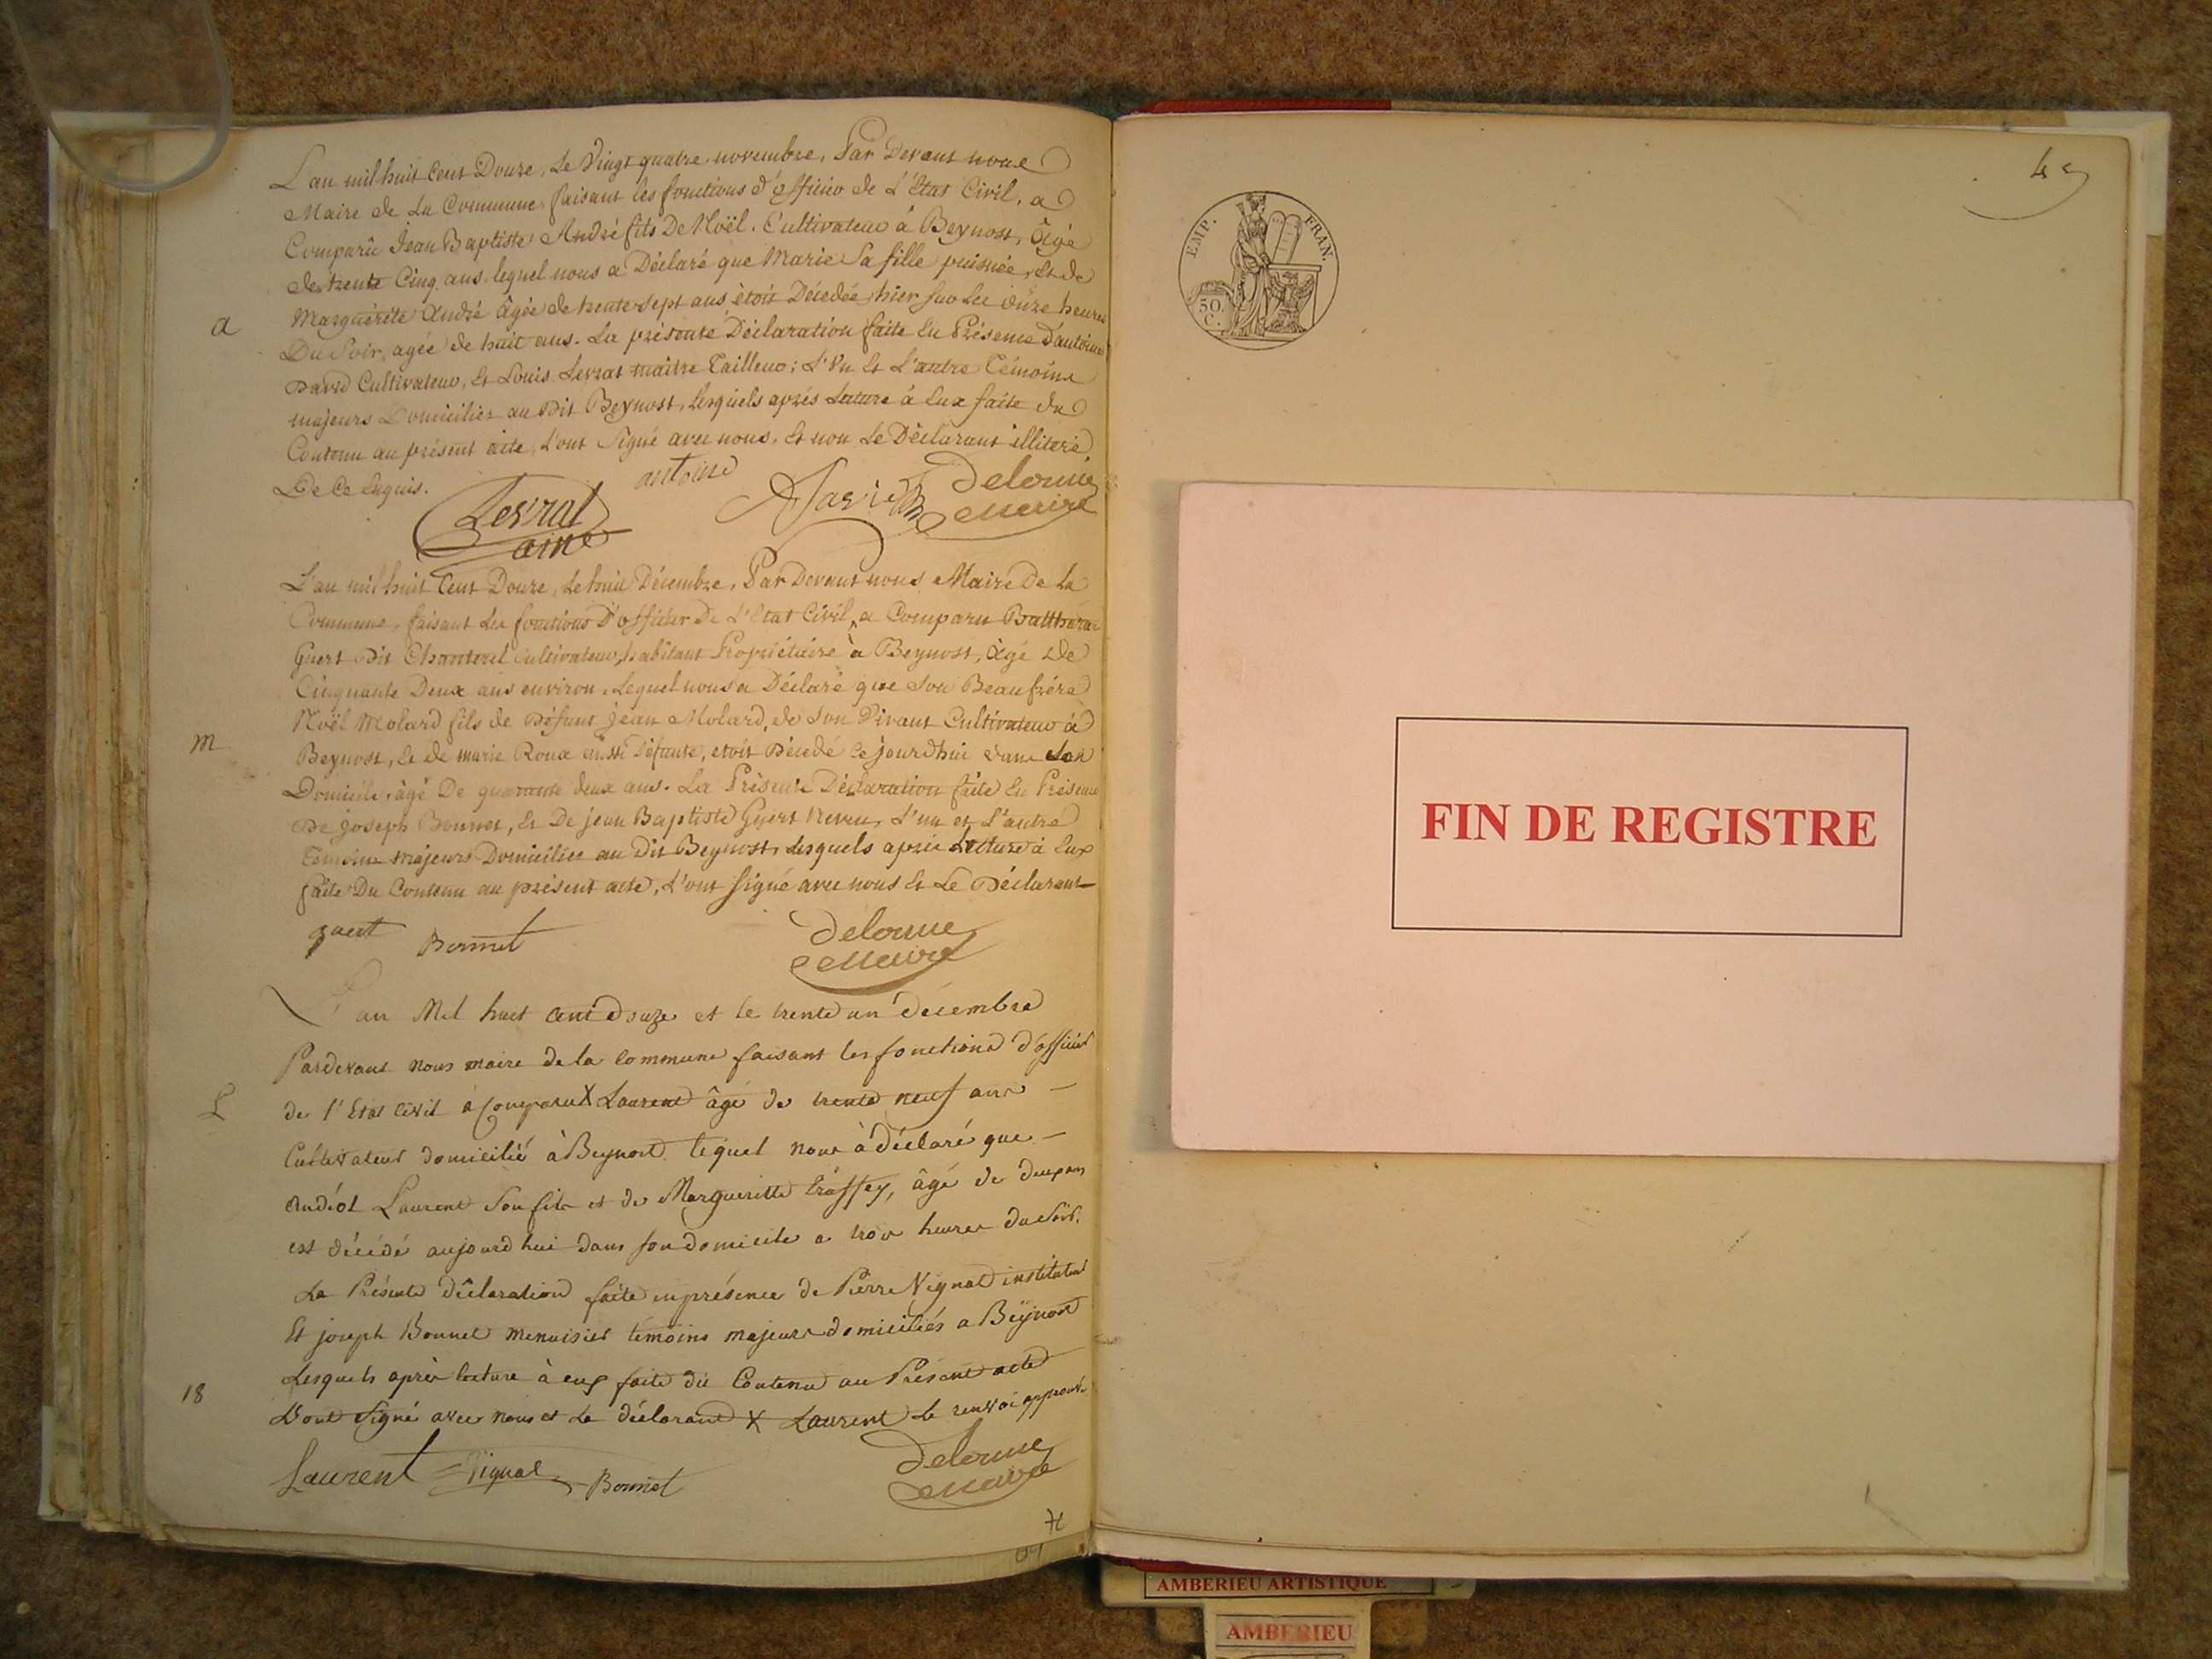 L'an mil huit Cent Douze, Le Vingt quatre novembre, Par Devant nous
Maire de La Commune, faisant les fonctions d'officier de L'Etat Civil, a
Comparû Jean Baptiste André fils De Noël, Cultivateur à Beynost, âgé
de trente Cinq ans, lequel nous a Déclaré que Marie Sa fille puisnée, Et de
Marguérite André âgée de trente sept ans, étoit Décedée hier sur les onze heures
a
Du Soir, agée de huit ans. La présente Déclaration faite En Présence d'antoine
David Cultivateur, Et Louis Levrat maître Tailleur; L'Un Et L'autre Témoins
majeurs Domiciliés au Dit Beynost, Lesquels après Lecture à Eux faite du
Contenu au présent acte, L'ont Signé avec nous, Et non Le Déclarant illiteré
De Ce Enquis.
antoine
David
Delorme
Maire
Levrat
ainé
L'an mil huit Cent Douze, Le huit Décembre, Par Devant nous Maire De La
Commune, faisant Les fonctions D'officier De L'Etat Civil, a Comparu Balthazar
Guert Dit Chanterel Cultivateur, habitant Propriétaire à Beynost, âgé De
Cinquante Deux ans environ, Lequel nous a Déclaré que Son Beaufrére
Noël Molard fils de Défunt Jean Molard, de Son Vivant Cultivateur à
m
Beynost, Et de marie Roux aussi Défunte, etoit Décedé Ce jourdhui dans Son
Domicile, âgé De quarante deux ans. La Présente Déclaration faite En Présence
De Joseph Bonnet, Et De jean Baptiste Guert Neveu, L'un et L'autre
Témoins majeurs Domiciliés au Dit Beynost, Lesquels après Lecture à Eux
faite Du Contenu au présent acte, L'ont Signé avec nous Et Le Déclarant
guert
Bonnet
Delorme
Maire
L'an Mil huit cent douze et le trente un décembre
Pardevant nous maire de la commune faisant les fonctions d'officier
L
de l'Etat Civil à Comparu X Laurent âgé de trente neuf ans
Cultivateur domicilié à Beynost lequel nous à déclaré que
Andéol Laurent Son fils et de Margueritte Traffey, âgé de deux ans
est décédé aujourd'hui dans son domicile a trois heures du Soir.
La Présente déclaration faite en présence de Pierre Vignat instituteur
Et joseph Bonnet menuisier témoins majeurs domiciliés a Beynost
Lesquels après lecture à eux faite du Contenu au Présent acte
18
L'ont Signé avec nous et Le déclarant X Laurent Le renvoi approuvé
Laurent
Vignat
Bonnet
Delorme
Maire
EMP. FRAN.
50.
C.
FIN DE REGISTRE
AMBERIEU ARTISTIQUE
AMBERIEU